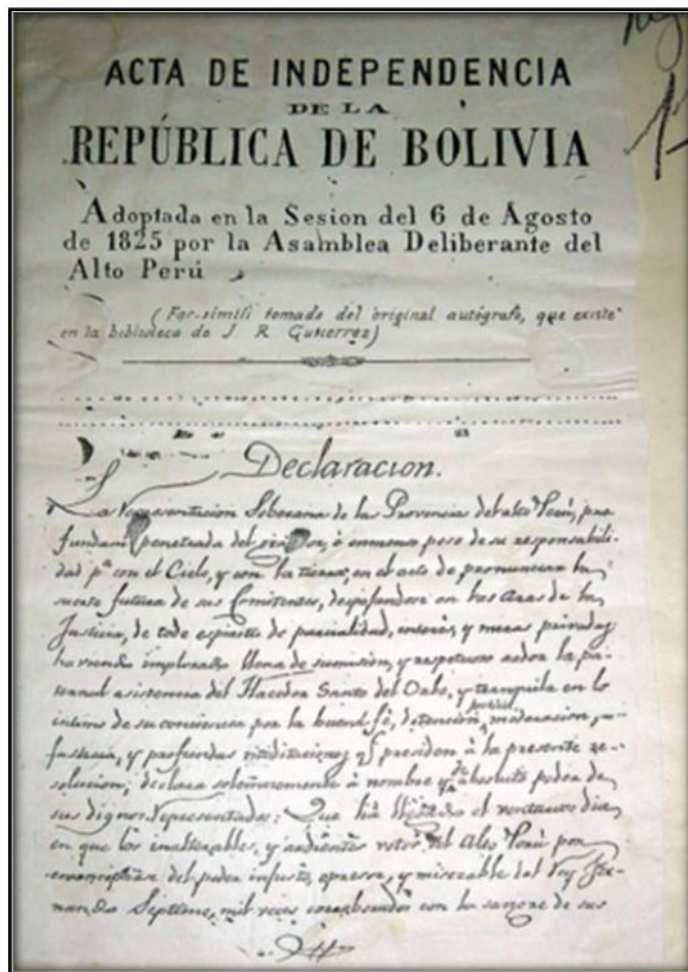 ACTA DE INDEPENDENCIA
DE LA
REPÚBLICA DE BOLIVIA
Adoptada en la Sesion del 6 de Agosto
de 1825 por la Asamblea Deliberante del
Alto Perú
(Fac-símili tomado del original autógrafo, que existe
en la biblioteca de J. R. Gutierrez)
Declaracion.
La Representacion Soberana de las Provincias del alto Perú, pro-
fundam penetrada del grandor, é inmenso peso de su responsabili-
dad pª con el Cielo, y con la tierra, en el acto de pronunciar la
suerte futura de sus Comitentes, despojandose en las aras de la
Justicia, de todo espiritu de parcialidad, interes, y miras privadas
haviendo implorado llena de sumision, y respetuoso ardor la pa-
ternal asistencia del Hacedor Santo del Orbe, y tranquila en lo
intimo de su conciencia por la buena fé, detencion, moderacion,
justicia, y profundas meditaciones qe presiden à la presente re-
solucion, declara solemnemente à nombre y absoluto poder de
sus dignos Representados: Que há llegado el venturoso dia
en que los inalterables, y ardientes votos del alto Perú por
emanciparse del poder injusto, opresor, y miserable del Rey Fer-
nando Septimo, mil veces corroborados con la sangre de sus